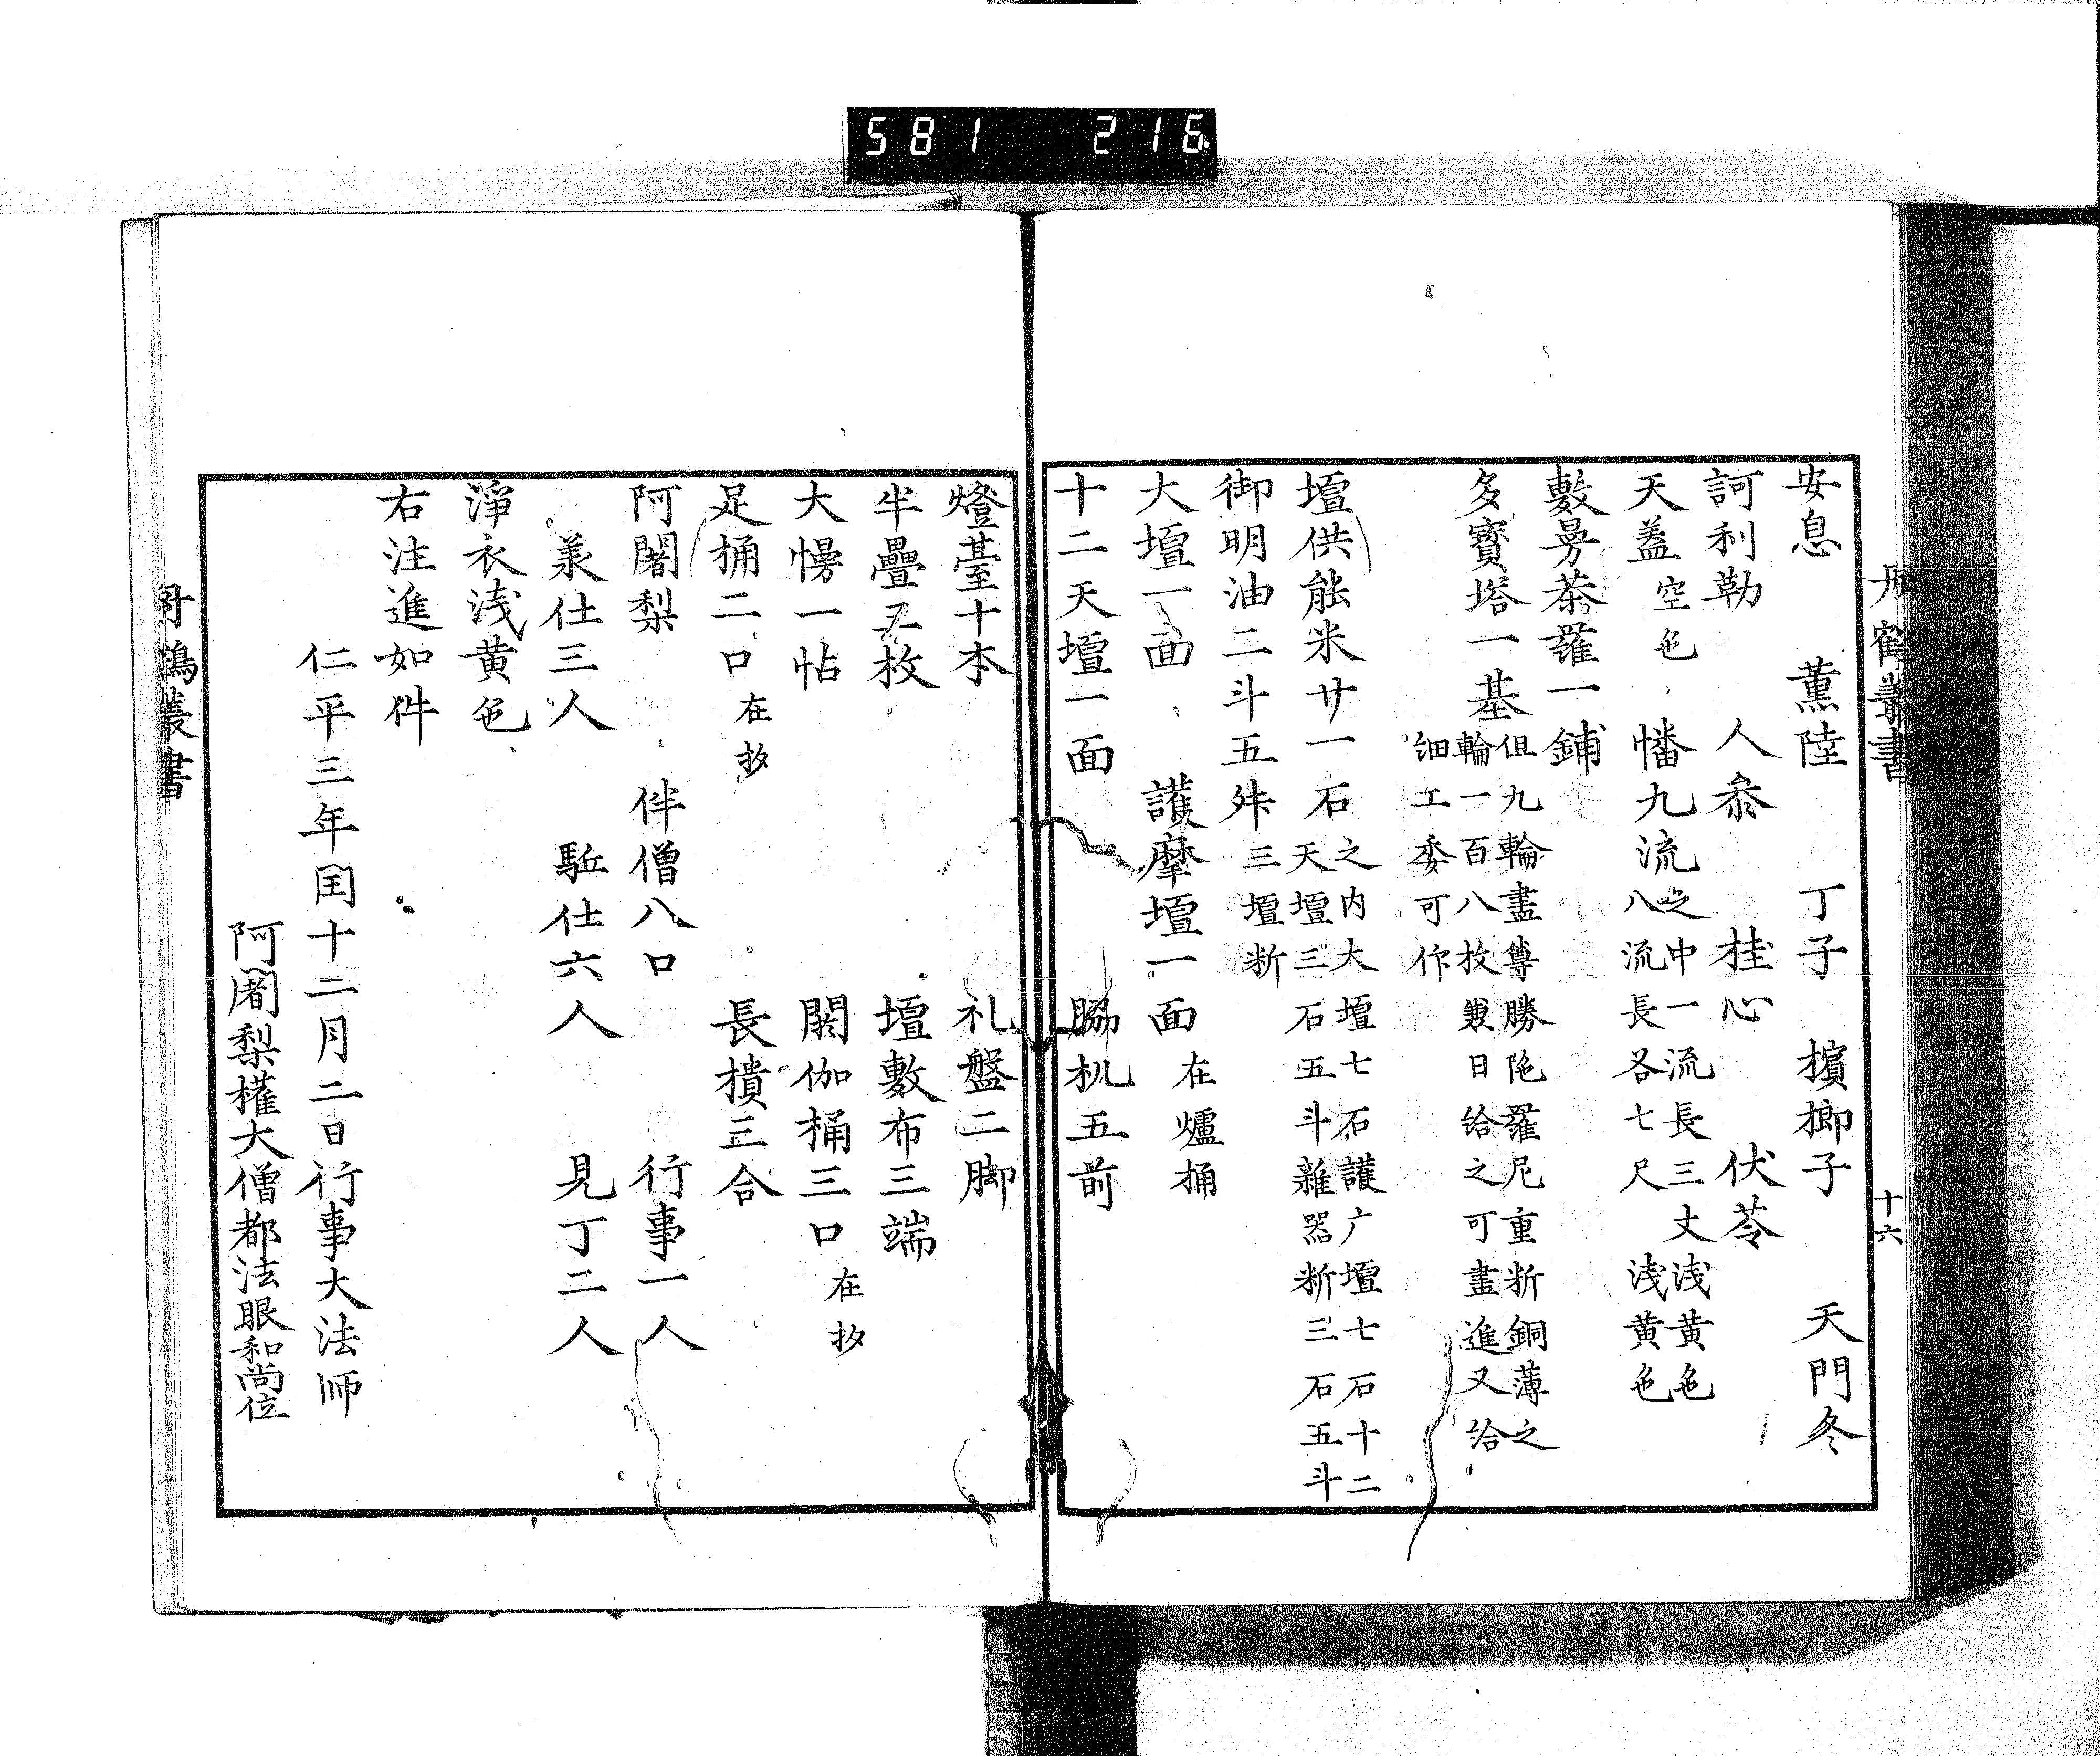 581 216
丹鶴叢書
十六
安息 薫陸 丁子 檳榔子 天門冬
訶利勒 人參 桂心 伏苓
天蓋空色 幡九流之中一流長三丈浅黄色
八流長各七尺浅黄色
敷曼荼羅一鋪
多寳塔一基但九輪盡尊勝陁羅尼重断銅薄之
輪一百八枚裂日給之可畫進又給
細工委可作
壇供能米廿一石之内大壇七石護广壇七石十二
天壇三石五斗雜器断三石五斗
御明油二斗五升三壇断
大壇一面 護摩壇一面在爐桶
十二天壇一面 脇机五前
燈臺十本 礼盤二脚
半疊五枚 壇敷布三端
大幔一帖 閼伽桶三口在杓
足桶二口在杓 長横三合
阿闍梨 伴僧八口 行事一人
羕仕三人 駈仕六人 見丁二人
淨衣浅黄色
右注進如件
仁平三年閏十二月二日行事大法師
阿闍梨權大僧都法眼和尚位
丹鶴叢書